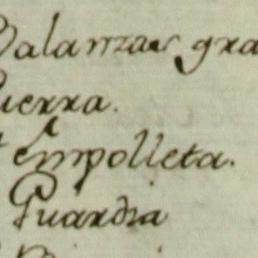 Balanzas gra
uerra.
empolleta.
Guardia